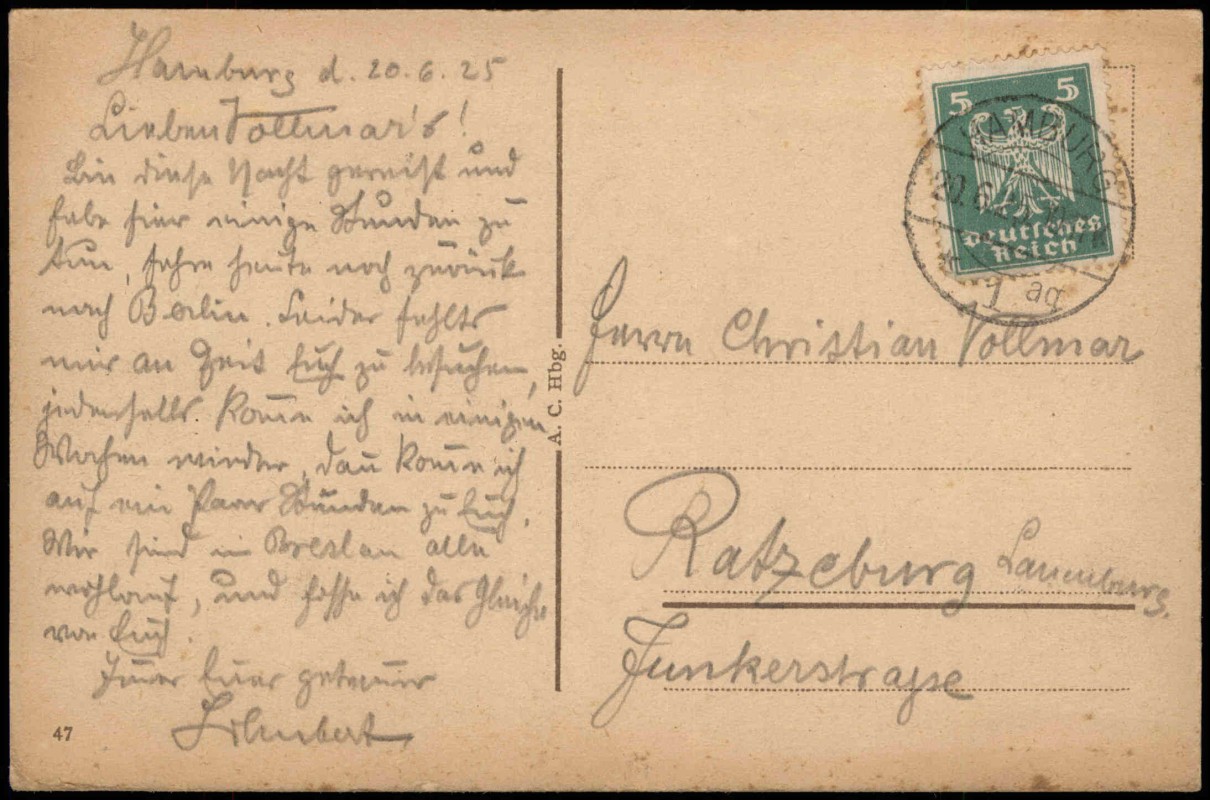 Hamburg d. 20.6.25
Lieben Vollmar's!
Bin diese Nacht gereist und
habe hier einige Stunden zu
tun, fahre heute noch zurück
nach Berlin. Leider fehlts
mir an Zeit Euch zu besuchen,
jedenfalls kom̅e ich in einigen
Wochen wieder, dan̅ kom̅e ich
auf ein Paar Stunden zu Euch.
Wir sind in Breslau alle
wohlauf, und hoffe ich das Gleiche
von Euch.
Im̅er Euer getreuer
A. C. Hbg.
47
5 5
Deutsches
Reich
HAMBURG
20.6.25
1 ad
Herrn Christian Vollmar
Ratzeburg Lauenburg.
Junkerstraße